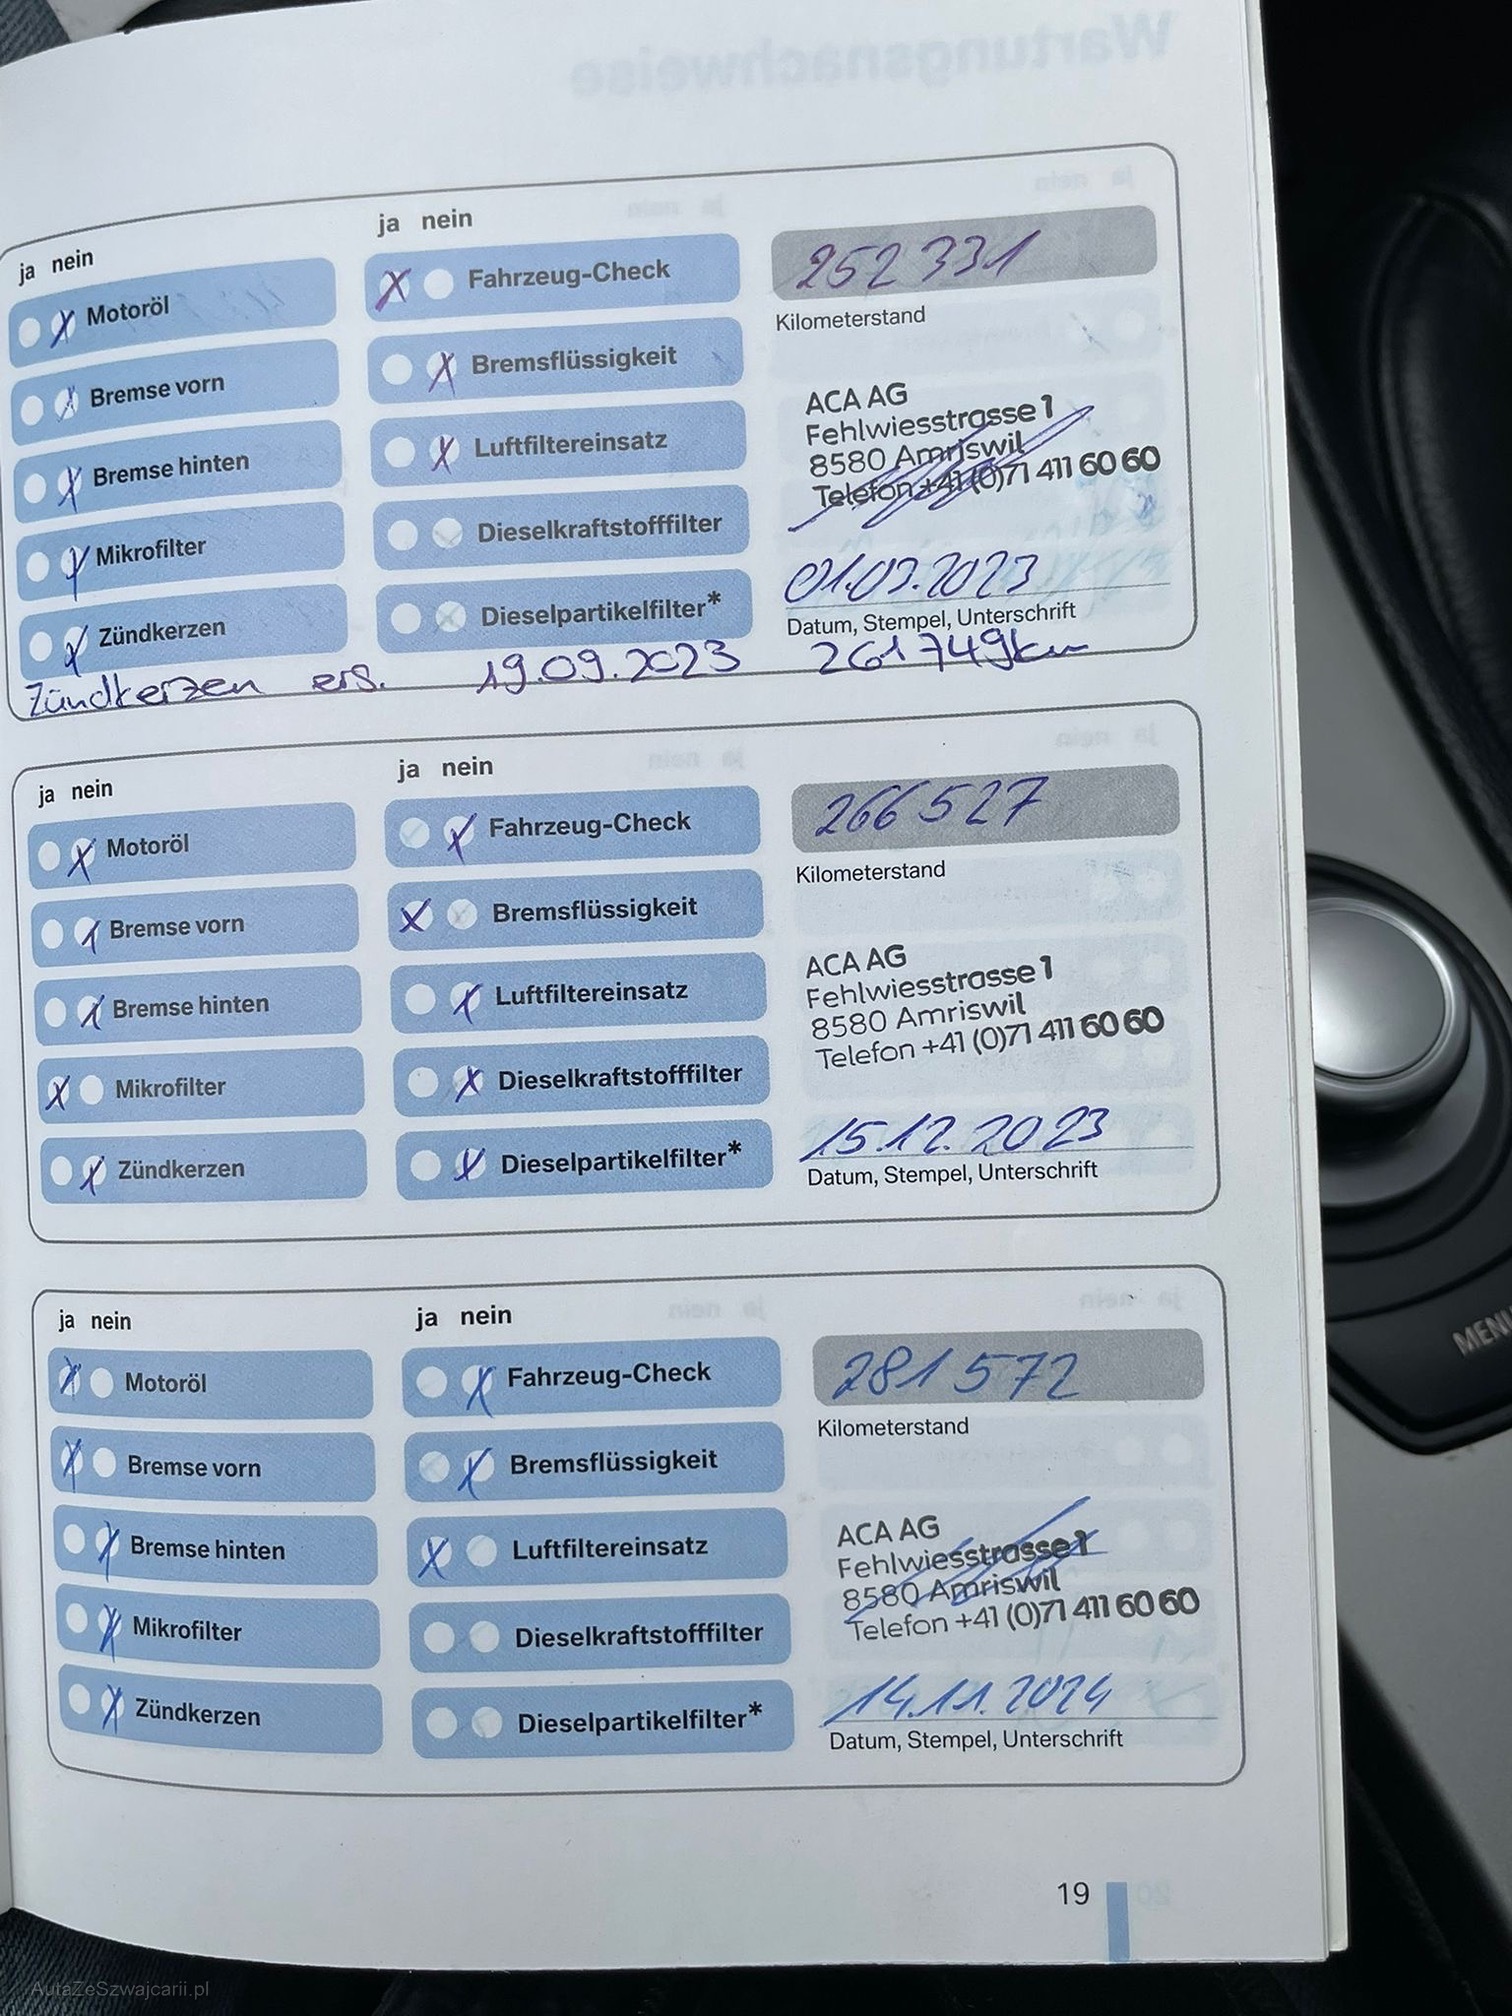 ja nein
ja nein
Motoröl
Bremse vorn
Bremse hinten
Mikrofilter
Zündkerzen
Fahrzeug-Check
Bremsflüssigkeit
Luftfiltereinsatz
Dieselkraftstofffilter
Dieselpartikelfilter*
252 331
Kilometerstand
ACA AG
Fehlwiesstrasse 1
8580 Amriswil
Telefon +41 (0)71 411 60 60
01.03.2023
Datum, Stempel, Unterschrift
Zündkerzen ers. 19.09.2023 261749km
ja nein
ja nein
Motoröl
Bremse vorn
Bremse hinten
Mikrofilter
Zündkerzen
Fahrzeug-Check
Bremsflüssigkeit
Luftfiltereinsatz
Dieselkraftstofffilter
Dieselpartikelfilter*
266 527
Kilometerstand
ACA AG
Fehlwiesstrasse 1
8580 Amriswil
Telefon +41 (0)71 411 60 60
15.12.2023
Datum, Stempel, Unterschrift
ja nein
ja nein
Motoröl
Bremse vorn
Bremse hinten
Mikrofilter
Zündkerzen
Fahrzeug-Check
Bremsflüssigkeit
Luftfiltereinsatz
Dieselkraftstofffilter
Dieselpartikelfilter*
281 572
Kilometerstand
ACA AG
Fehlwiesstrasse 1
8580 Amriswil
Telefon +41 (0)71 411 60 60
14.11.2024
Datum, Stempel, Unterschrift
19
MENU
AutaZeSzwajcarii.pl